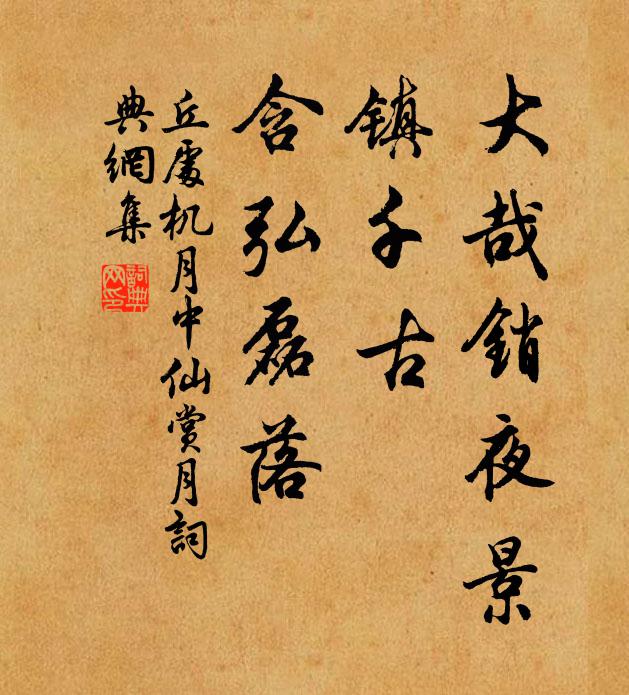 大哉銷夜景
鎮千古
含弘磊落
丘處机月中仙賞月詞
典網集
詞典網印